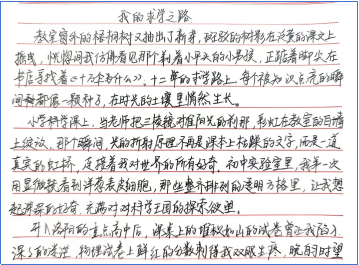 我的求学之路
教室窗外的梧桐树又抽出了新芽，斑驳的树影在泛黄的课文上
摇曳，恍惚间我仿佛看见那个剃着小平头的小男孩，正踮着脚尖在
书店寻找着《十万个为什么》。十二年的求学路上，每个被知识点亮的瞬
间都像一颗种子，在时光的土壤里悄然生长。
小学科学课上，当老师把三棱镜对准阳光的刹那，彩虹在教室的白墙
上绽放，那个瞬间，光的折射原理不再是课本上枯燥的文字，而是一道
真实的虹桥，连接着我对世界的所有好奇。初中实验室里，我第一次
用显微镜看到洋葱表皮细胞，那些整齐排列的透明方格里，让我想
起深深的好奇，充满对对科学王国的探索欲望。
升入洛阳的重点高中后，课桌上的堆积如山的试卷曾让我陷入
深深的迷茫，物理试卷上鲜红的分数刺得我双眼生疼，晚自习时望